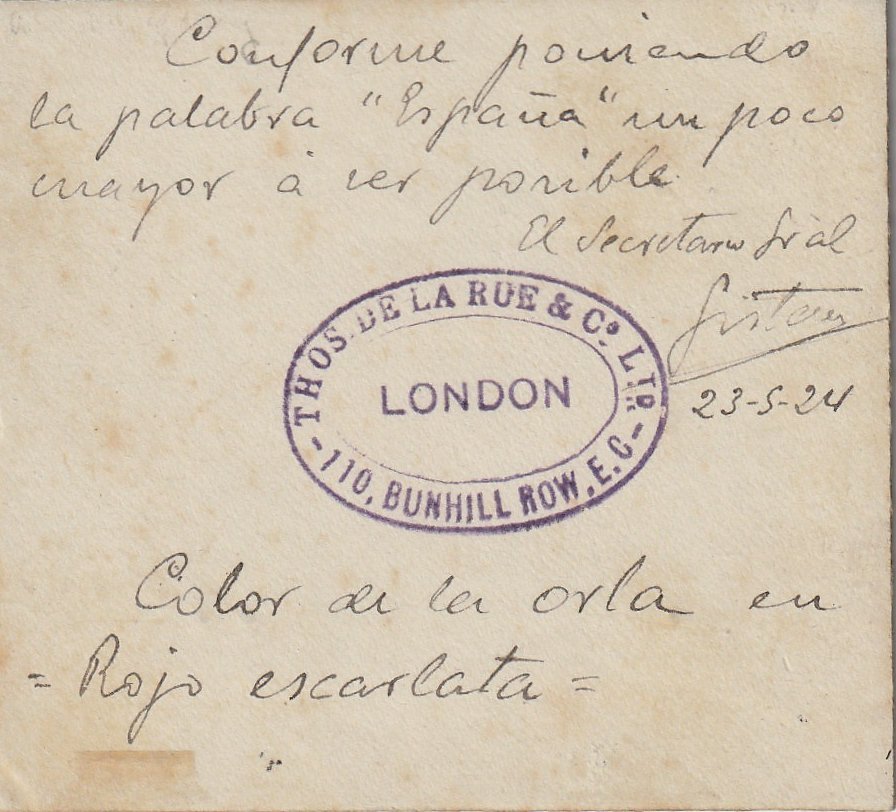 Conforme poniendo
la palabra "España" un poco
mayor à ser posible
El Secretario Gràl
23-5-24
THOS. DE LA RUE & Cº. LTD.
LONDON
-110, BUNHILL ROW, E.C-
Color de la orla en
= Rojo escarlata =